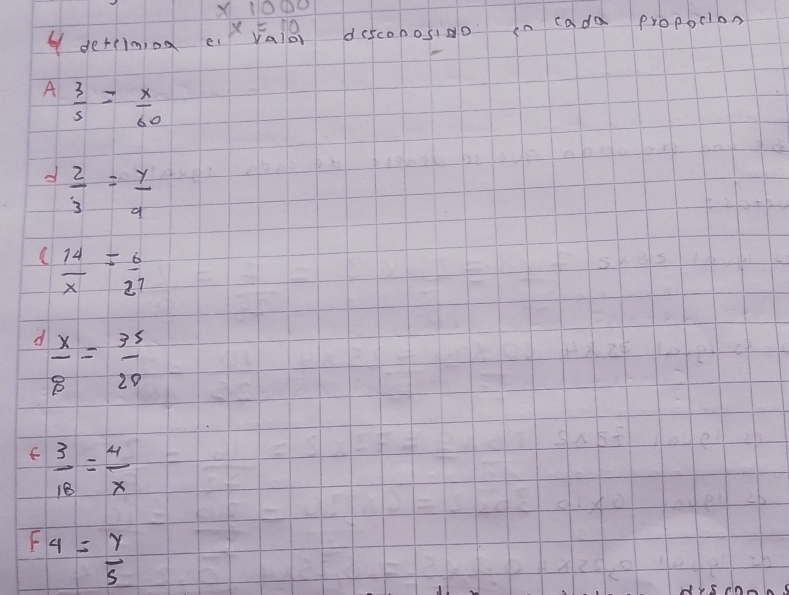 x 1000
x = 10
4 determina el valor desconosido en cada propocion
A 3/5 = x/60
d 2/3 = y/9
C 14/x = 6/27
d x/8 = 35/20
E 3/18 = 4/x
F 4 = y/5